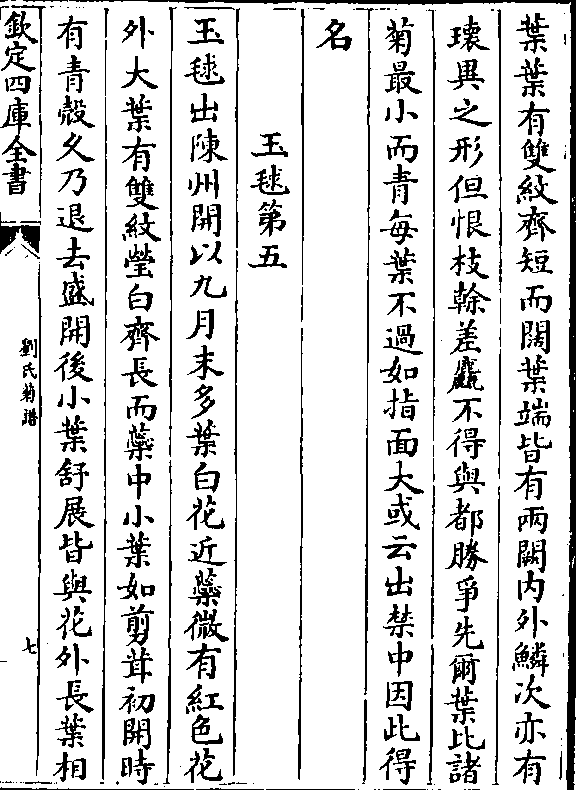 葉葉有雙紋齊短而闊葉端皆有兩闕内外鱗次亦有
瓌異之形但恨枝榦差麤不得與都勝爭先爾葉比諸
菊最小而青每葉不過如指面大或云出禁中因此得
名
玉毬第五
玉毬出陳州開以九月末多葉白花近蘂微有紅色花
外大葉有雙紋瑩白齊長而蘂中小葉如剪茸初開時
有青殻久乃退去盛開後小葉舒展皆與花外長葉相
欽定四庫全書
劉氏菊譜
七